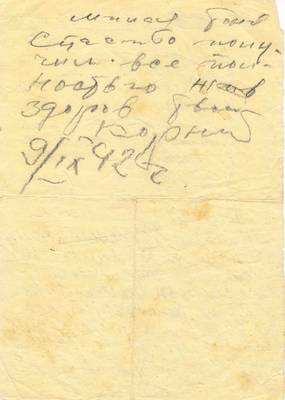 милая Тоня
Спасибо полу-
чил. все пол-
ностью жив
здоров твой
Корний
9/IX 42 г